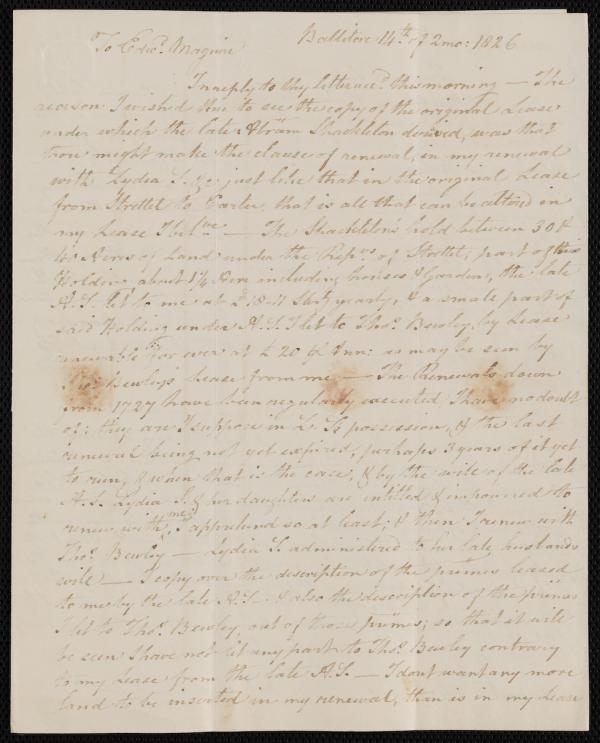 To Edwd. Maguire Ballitore 14th. of 2mo: 1826
In reply to thy letter recd. this morning — The
reason I wished thee to see the copy of the original Lease
under which the late Abrm. Shackleton derived, was that
thou might make the clause of renewal, in my renewal
with Lydia S. &c. just like that in the original Lease
from Strettel to Carter, that is all that can be altered in
my Lease I belve. — The Shackleton's hold between 30 &
40 Acres of Land under the Reps. of Strettel; part of this
Holding about 1¼ Acre including houses & Garden, the late
A.S. let to me at £18-17 Ster. yearly, & a small part of
said Holding under A.S. I let to Thos. Bewley, by Lease
renewable For ever at £20 Ann: as may be seen by
Thos. Bewley's Lease from me — The Renewals down
from 1727 have been regularly executed I have no doubt
of; they are I suppose in L. S's possession, & the last
renewal being not yet expired, perhaps 3 years of it yet
to run, & when that is the case, & by the will of the late
A.S. Lydia S. & her daughters are intitled & impowered to
renew with me, I apprehend so at least; & then I renew with
Thos. Bewley — Lydia S. administered to her late husbands
will — I copy over the description of the premes leased
to me by the late A.S. & also the description of the premes
I let to Thos. Bewley, out of those premes; so that it will
be seen I have not let any part to Thos. Bewley contrary
to my Lease from the late A.S. — I dont want any more
land to be inserted in my renewal, than is in my Lease